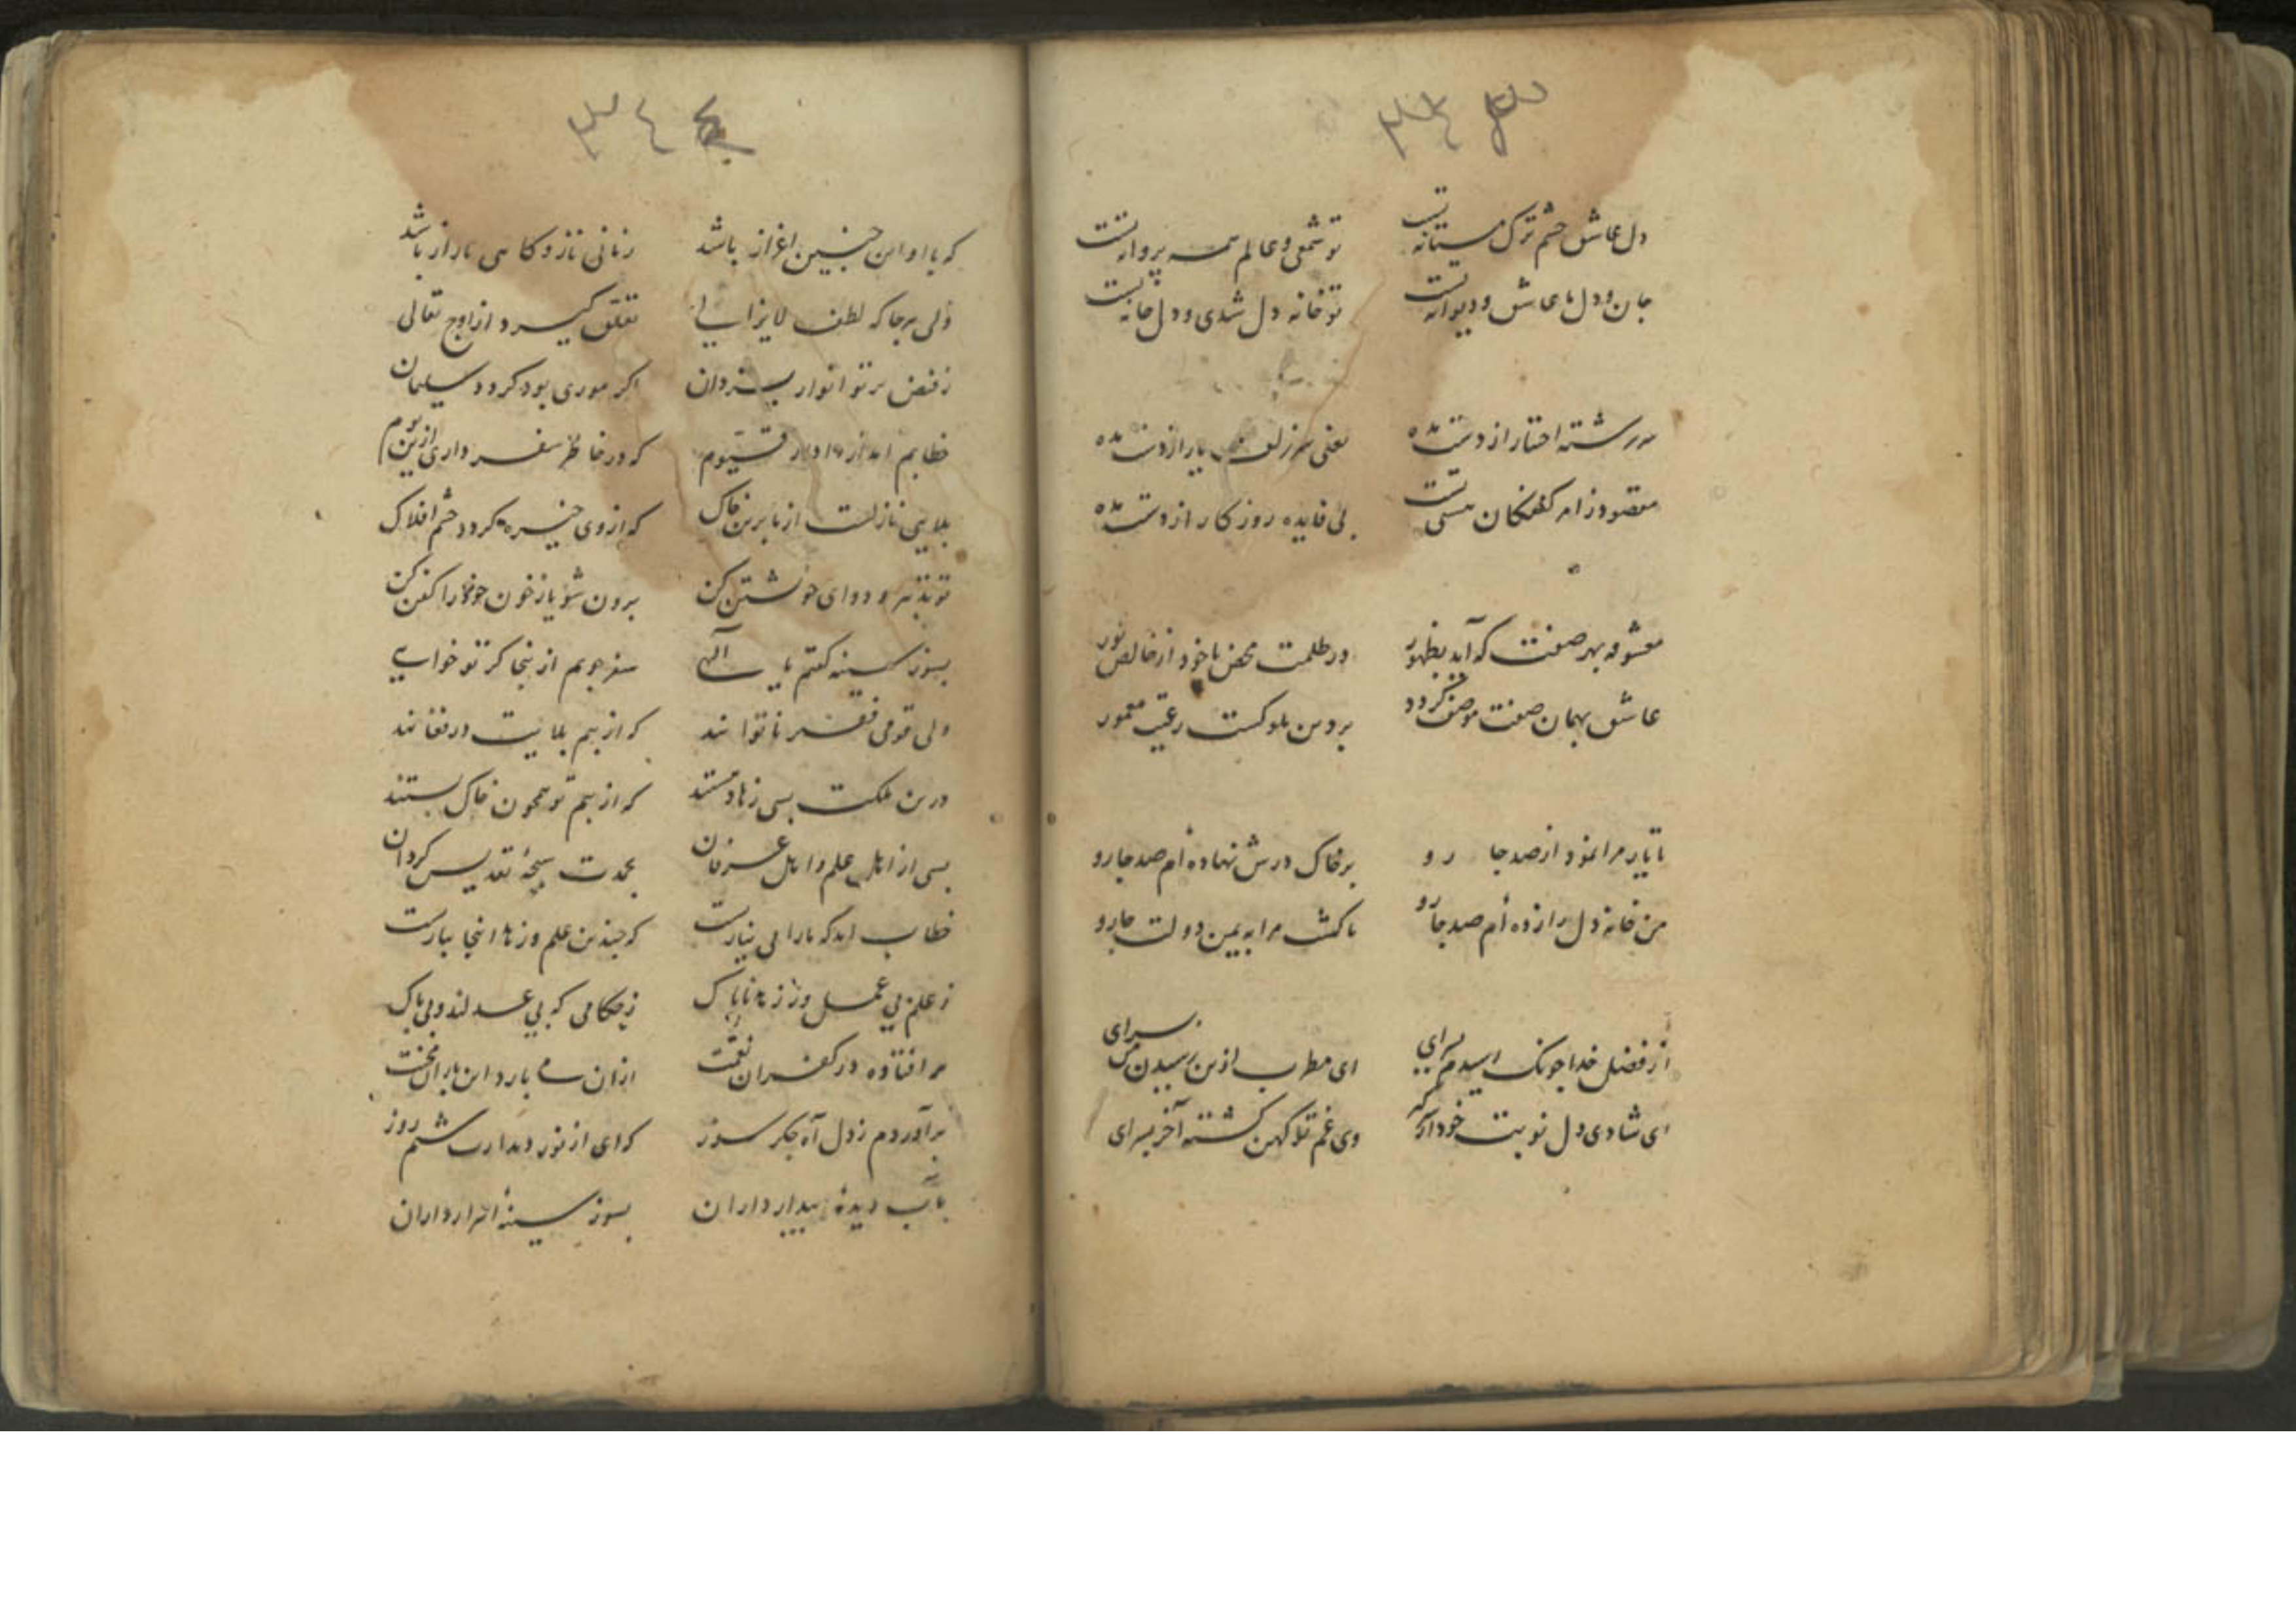 ۳۴۳
دل عاشق چشم ترک مستانه تست تو شمعی و عالم همه پروانه تست
جان و دل ما عاشق و دیوانه تست تو خانه دل شدی و دل خانه تست
سررشته اختیار از دست مده یعنی سر زلف یار از دست مده
مقصود ز امر کن فکان هستی تست بی فایده روزکار از دست مده
معشوقه بهر صفت که آید بظهور در ظلمت محض یا خود از خالص نور
عاشق بهمان صفت موصف کردد بر دین ملوکست رعیت مقمور
تا یار مرا نمود از صد جا رو بر خاک درش نهاده‌ام صد جا رو
من خانه دل را زده‌ام صد جارو تا کشت مرا به یمن دولت جارو
از فضل خدا چونک رسیدم بسرای ای مطرب ازین رسیدن من بسرای
ای شادی دل نوبت خود آر که وی غم تو کهن کشته آخر بسرای
۳۴۴
که با او این چنین اغراز باشد زمانی ناز و کاهی راز باشد
ولی هرجا که لطف لایزالی تعلق کیرد از اوج تعالی
ز فیض پرتو انوار یزدان اکر موری بود کردد سلیمان
خطابم آمد از دادار قیوم که در خاطر سفر داری ازین بوم
بلایی نازلست از ما برین خاک که از وی خیره کردد چشم افلاک
تو تدبیر و دوای خویشتن کن برون شو یا ز خون خود را کفن کن
بسوز سینه کفتم یا الهی سفر جویم ازینجا کر تو خواهی
ولی قومی فقیر ناتوانند که از بیم بلایت در فغانند
درین ملکت بسی زهاد هستند که از بیم تو همچون خاک پستند
بسی از اهل علم و اهل عرفان بحمدت سبحهٔ تقدیس کردان
خطاب آمد که ما را بی نیازیست که چندین علم و زهد اینجا ببازیست
ز علم بی عمل وز زهد ناپاک ز حکامی که بی عدلند و بی باک
سر افتاده در کفران نعمت ازان می بارد این باران محنت
برآوردم ز دل آه جکر سوز که ای از نور دیدارت شبم روز
بآب دیدهٔ بیدار داران بسوز سینهٔ اسرار داران